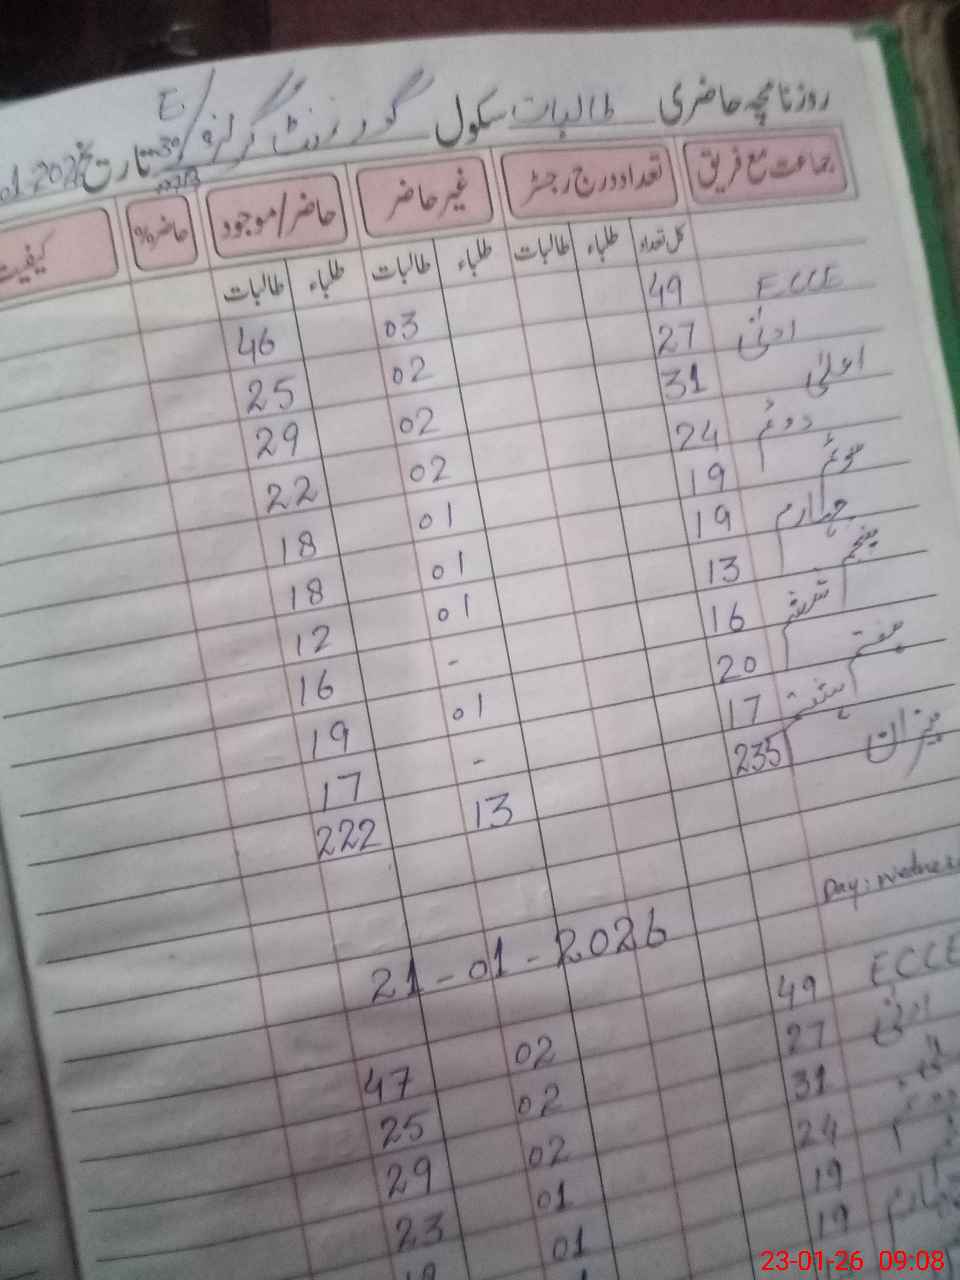 روزنامچہ حاضری طالبات سکول گورنمنٹ گرلز E/ تاریخ
جماعت مع فریق تعداد درج رجسٹر غیر حاضر حاضر/موجود حاضر% کیفیت
کل تعداد طلباء طالبات طلباء طالبات طلباء طالبات
ECCE 49 03 46
ادنیٰ 27 02 25
اعلیٰ 31 02 29
دوئم 24 02 22
سوئم 19 01 18
چہارم 19 01 18
پنجم 13 01 12
ششم 16 - 16
ہفتم 20 01 19
ہشتم 17 - 17
میزان 235 13 222
21-01-2026
ECCE 49 02 47
ادنیٰ 27 02 25
31 02 29
24 01 23
19 01
چہارم 19
23-01-26 09:08